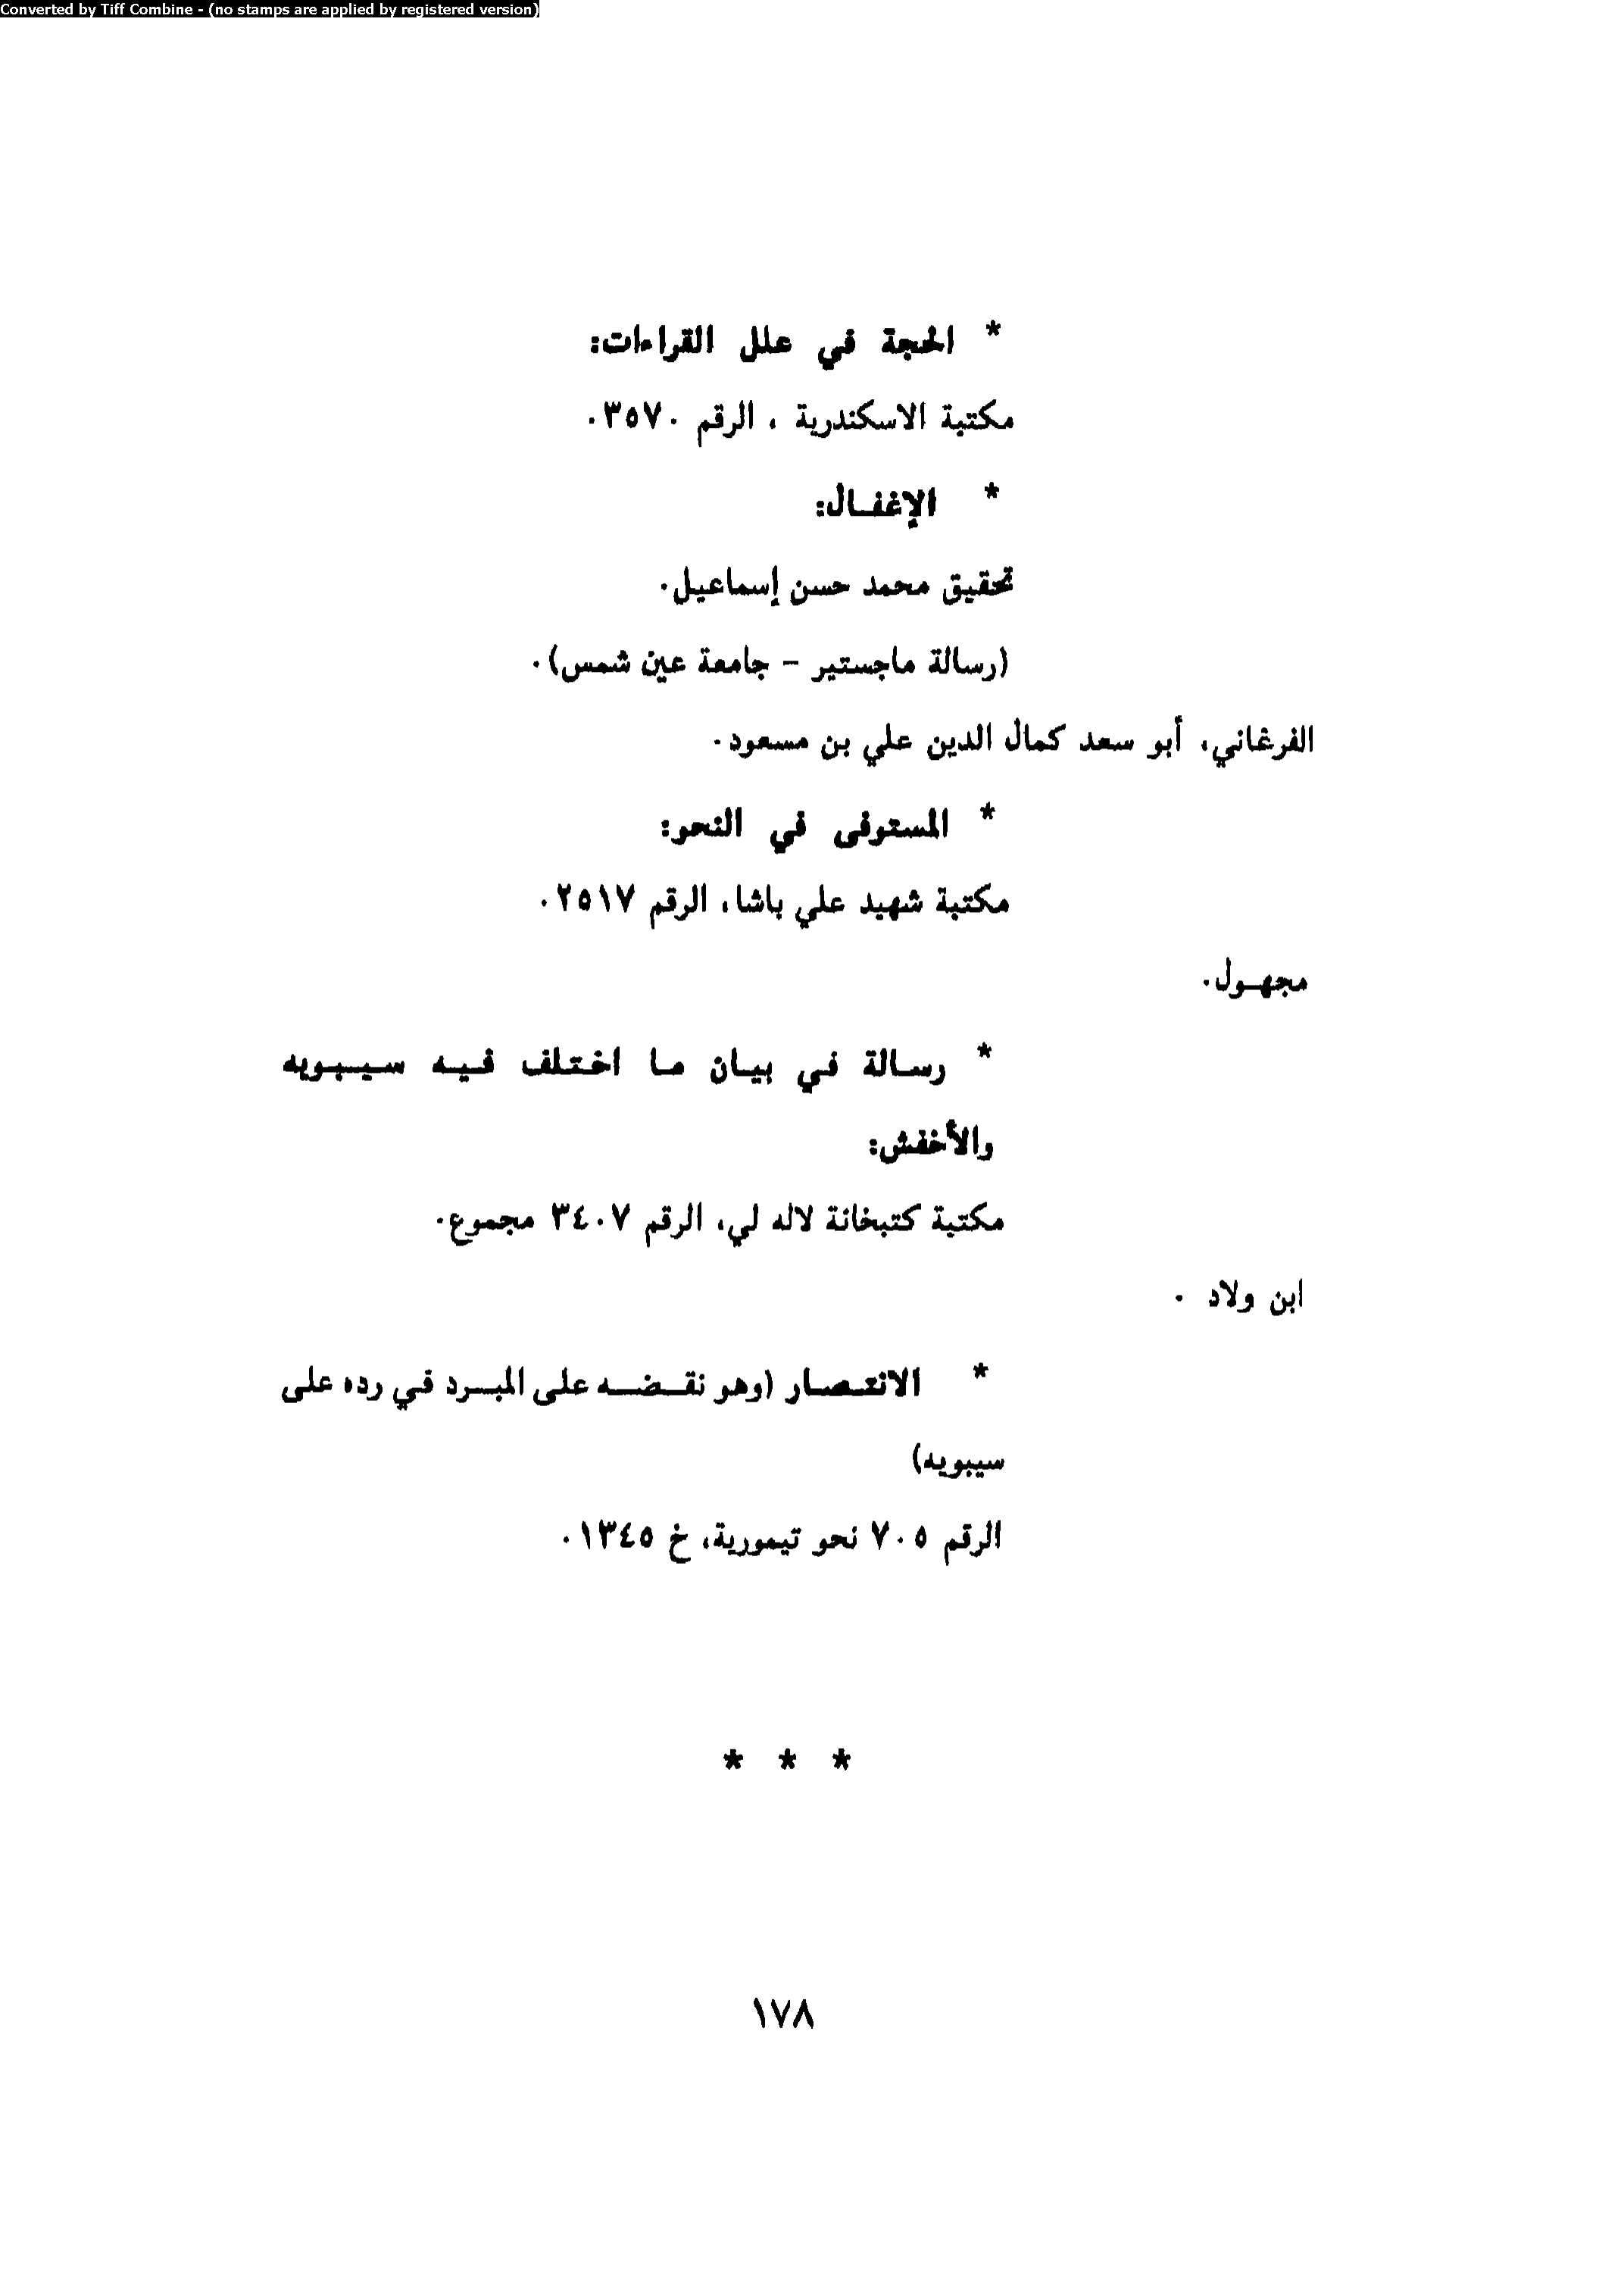 Converted by Tiff Combine - (no stamps are applied by registered version)
* الحجة في علل القراءات:
مكتبة الاسكندرية ، الرقم ٣٥٧٠.
* الإغفـال:
تحقيق محمد حسن إسماعيل.
(رسالة ماجستير - جامعة عين شمس).
الفرغاني، أبو سعد كمال الدين علي بن مسعود.
* المستوفى في النحو:
مكتبة شهيد علي باشا، الرقم ٢٥١٧.
مجهـول.
* رسـالة في بيـان مـا اخـتـلف فـيـه سـيـبـويه
والأخفش:
مكتبة كتبخانة لاله لي، الرقم ٣٤٠٧ مجموع.
ابن ولاد .
* الانتـصـار (وهو نقـضـه على المبـرد في رده على
سيبويه)
الرقم ٧٠٥ نحو تيمورية، خ ١٣٤٥.
* * *
١٧٨